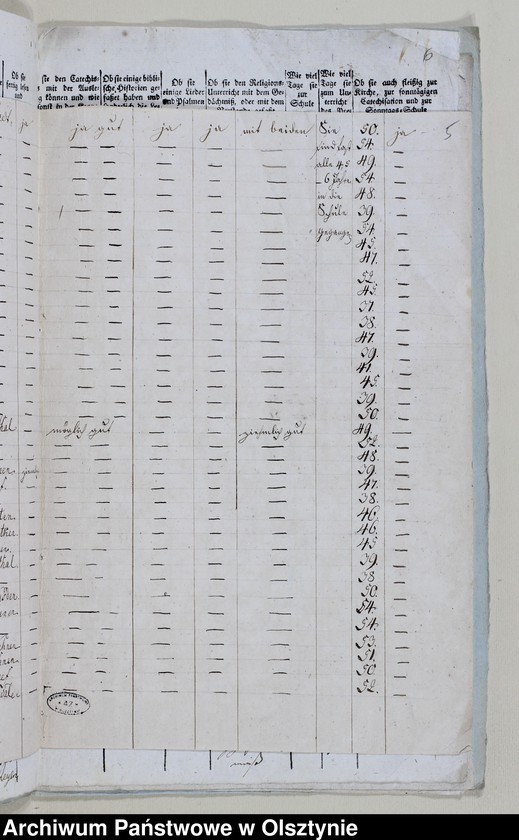 6
Ob sie
fertig lesen
und
sie den Catechis-
mit der Ausle-
g können und wie
Ob sie einige bibli-
sche Historien ge-
faßet haben und
Ob sie
einige Lieder
und Psalmen
Ob sie den Religions-
Unterricht mit dem Ge-
dächtniß, oder mit dem
Wie viel
Tage sie
zur
Schule
Wie viel
Tage sie
zum Un-
terricht
Ob sie auch fleißig zur
Kirche, zur sonntägigen
Catechisation und zur
Sonntags-Schule
ja gut ja ja mit beiden Sie 50. ja 5
sind fast 54.
alle 4, 5 49.
– 6 Jahre 54.
in die 48.
Schule 39.
gegangen 54.
45.
47.
52.
45.
37.
38.
47.
39.
41.
45.
39.
50.
möglich gut ziemlich gut 49.
52.
48.
39.
47.
38.
46.
46.
45
39.
38.
50.
54.
54.
53.
51.
50.
52.
Archiwum Państwowe w Olsztynie